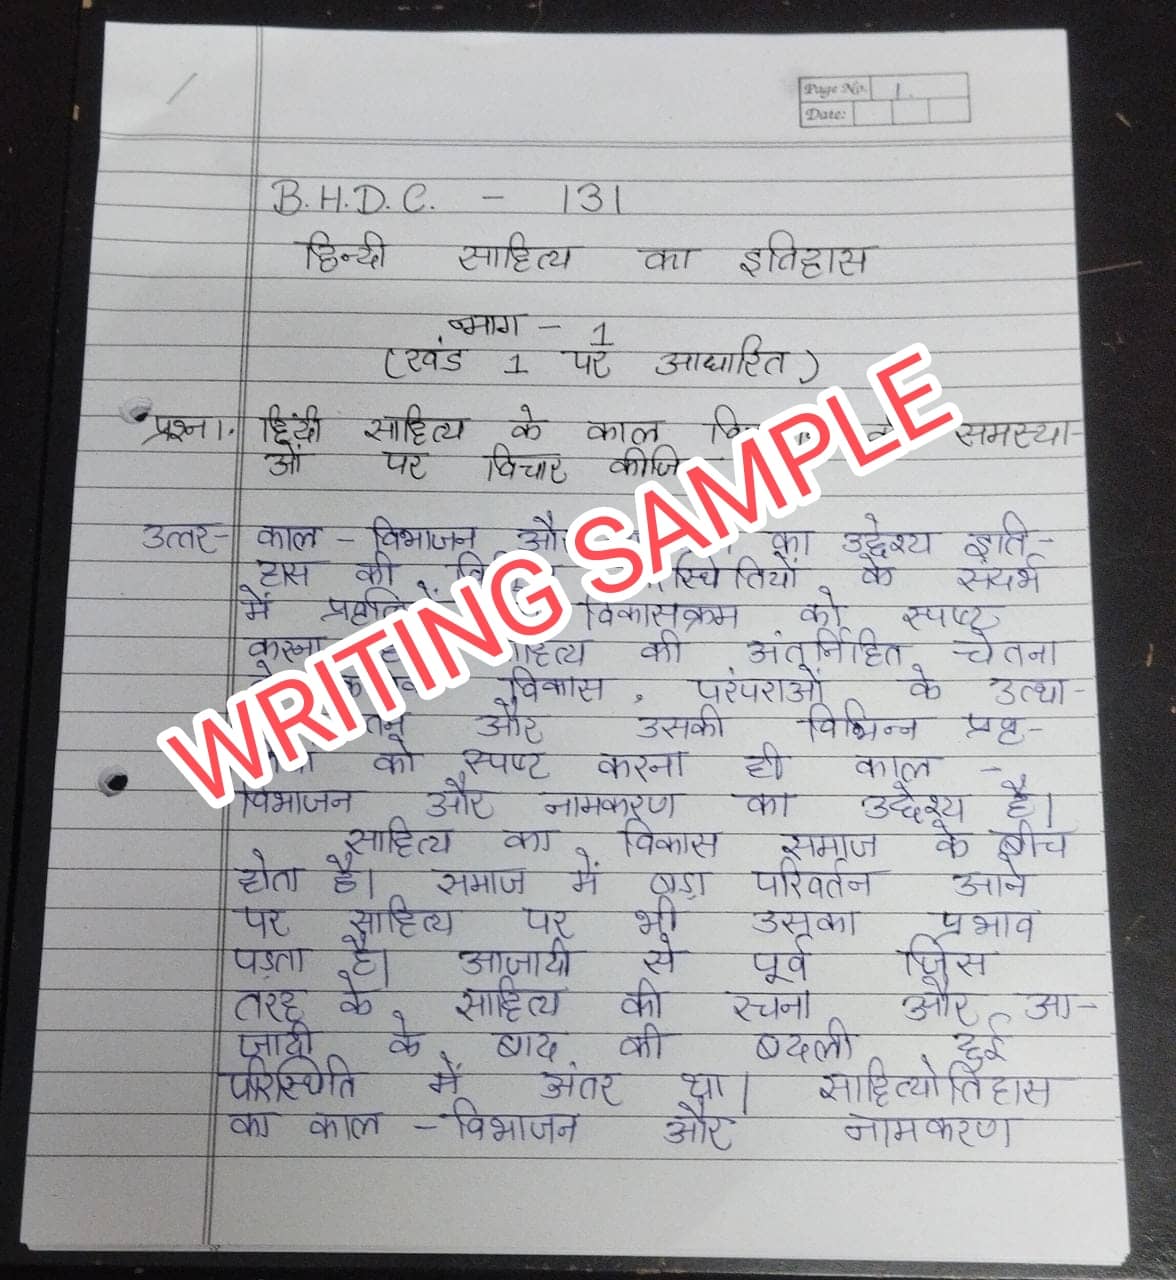 Page No. 1.
Date:
B.H.D.C. - 131
हिन्दी साहित्य का इतिहास
भाग - 1
(खंड 1 पर आधारित)
प्रश्न1. हिंदी साहित्य के काल समस्या-
ओं पर विचार
उत्तर- काल - विभाजन का उद्देश्य इति-
हास की के संदर्भ
में विकासक्रम को स्पष्ट
करना की अंतर्निहित चेतना
विकास, परंपराओं के उत्था-
और उसकी विभिन्न प्रवृ-
को स्पष्ट करना ही काल -
विभाजन और नामकरण का उद्देश्य है।
साहित्य का विकास समाज के बीच
होता है। समाज में बड़ा परिवर्तन आने
पर साहित्य पर भी उसका प्रभाव
पड़ता है। आजादी से पूर्व जिस
तरह के साहित्य की रचना और आ-
जादी के बाद की बदली हुई
परिस्थिति में अंतर था। साहित्योतिहास
का काल - विभाजन और नामकरण
WRITING SAMPLE